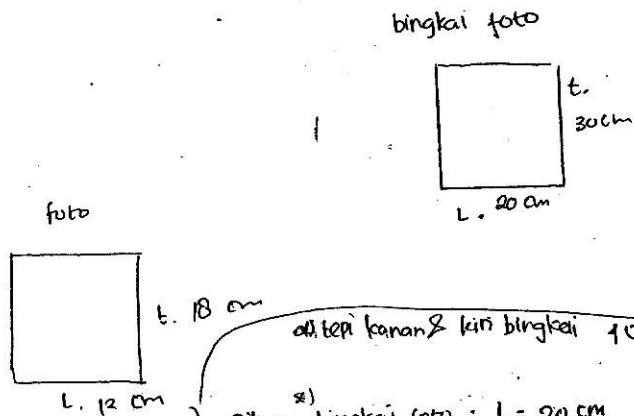 bingkai foto
t.
30 cm
L. 20 cm
foto
t. 18 cm
L. 12 cm
tepi kanan & kiri bingkai
*)
bingkai foto : L = 20 cm